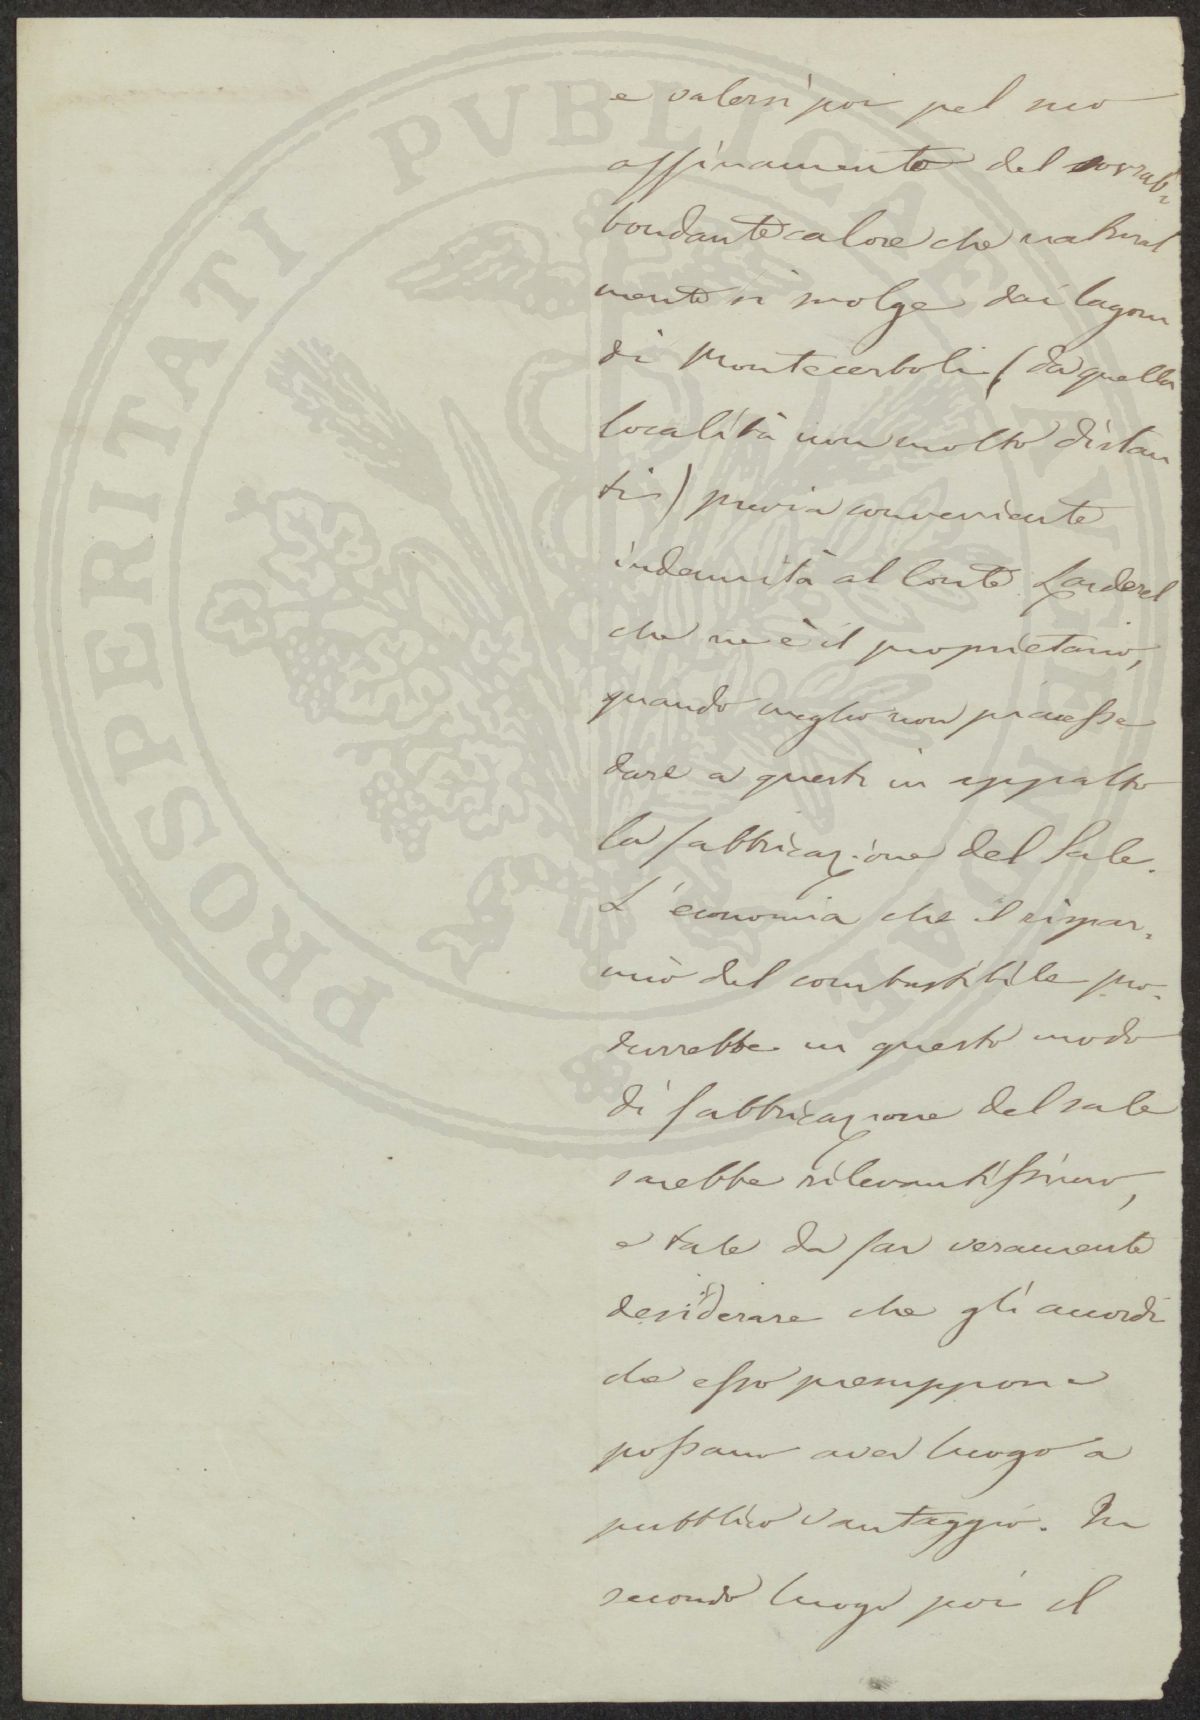 e valersi poi pel suo
affinamento del sovrab-
bondante calore che natural
mente si svolge dai lagoni
di Montecerboli (da quella
località non molto distan
ti) previa conveniente
indennità al Conte Larderel
che ne è il proprietario,
quando meglio non piacesse
dare a questi in appalto
la fabbricazione del Sale.
L'economia che il rispar-
mio del combustibile pro-
durrebbe in questo modo
di fabbricazione del sale
sarebbe rilevantissimo,
e tale da far veramente
desiderare che gli accordi
che esso presuppone
possano aver luogo a
pubblico vantaggio. In
secondo luogo poi il
PROSPERITATI PVBLICAE AVGENDAE